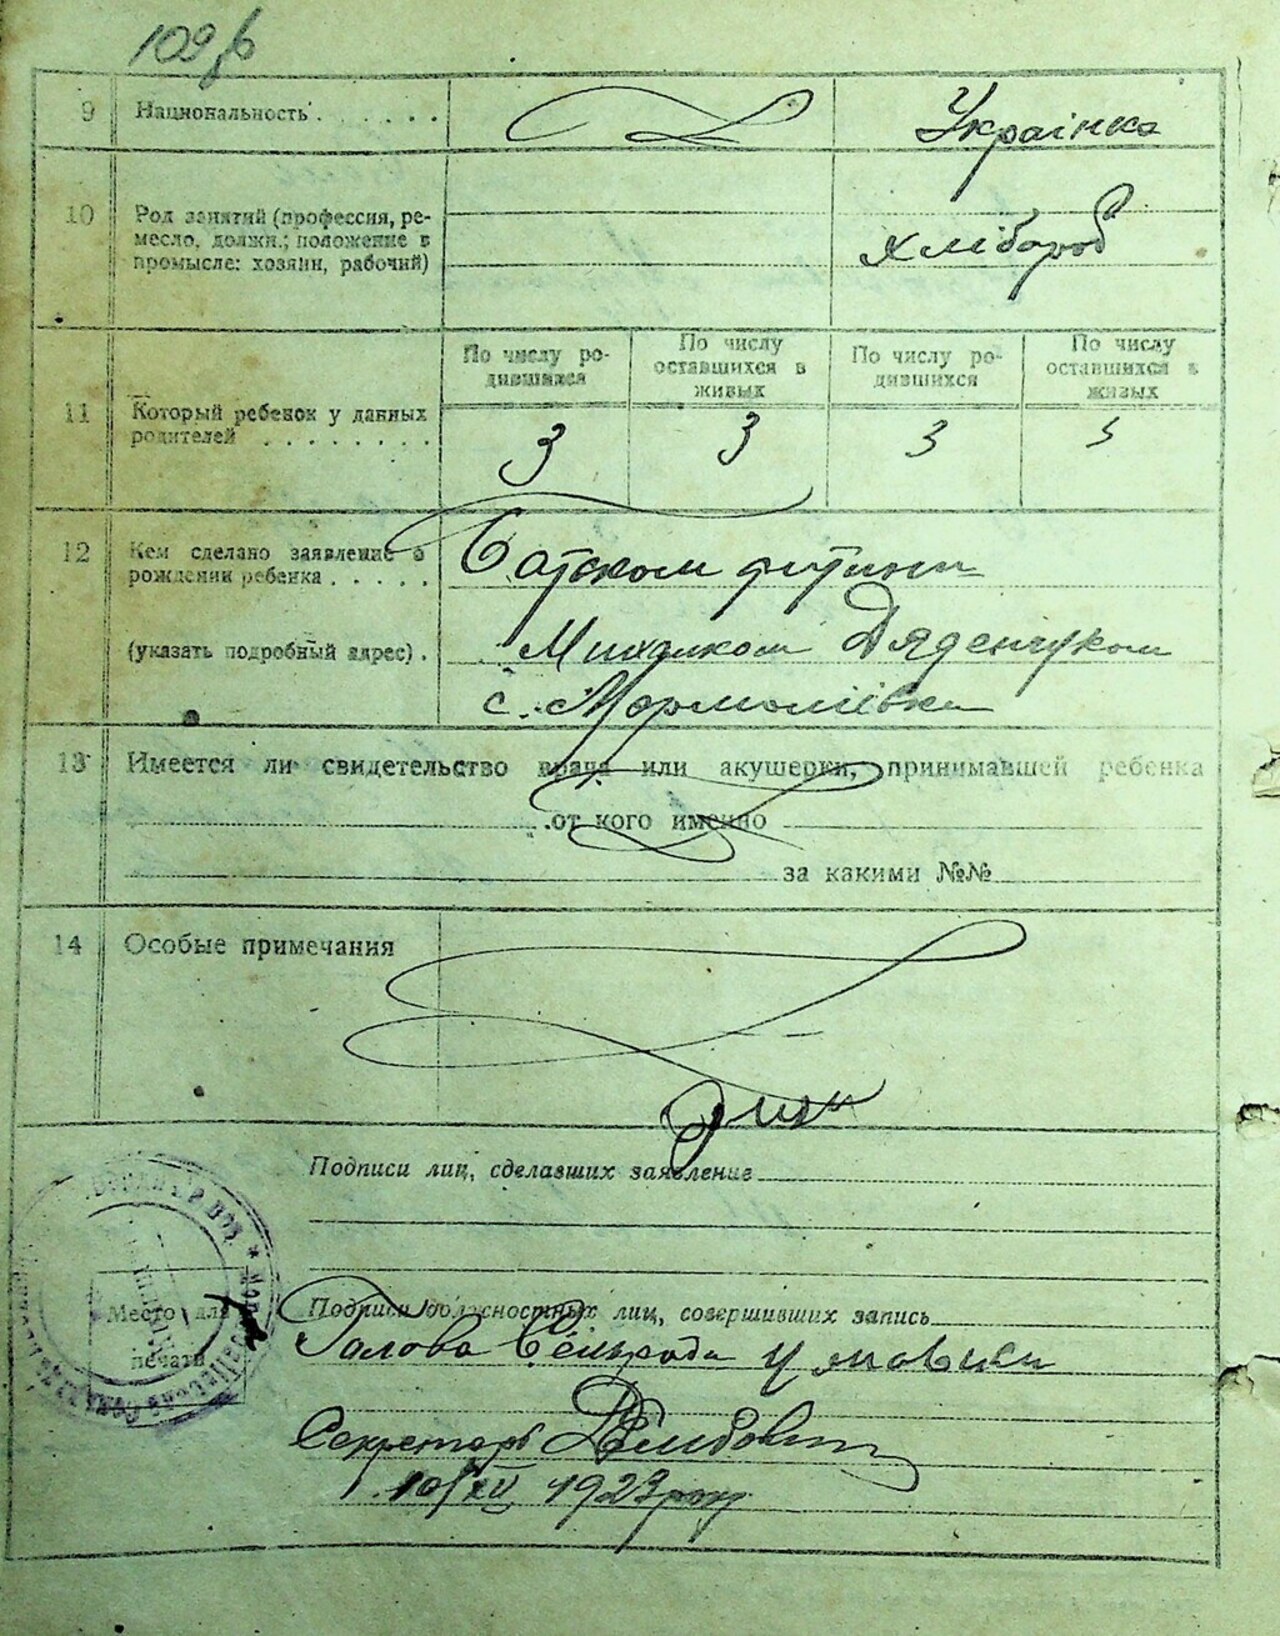 109
9 Национальность . . . . . . Українка
10 Род занятий (профессия, ре-
месло, должн.; положение в
промысле: хозяин, рабочий)
хлібороб
По числу ро-
дившихся
По числу
оставшихся в
живых
По числу ро-
дившихся
По числу
оставшихся в
живых
11 Который ребенок у данных
родителей . . . . . . . .
3 3 3
12 Кем сделано заявление о
рождении ребенка . . . . .
Батьком дитини
(указать подробный адрес) . Михалком Дяденчуком
с. Мормоліївки
13 Имеется ли свидетельство врача или акушерки, принимавшей ребенка
от кого именно
за какими №№
14 Особые примечания
Подписи лиц, сделавших заявление
Место для
печати
Подписи должностных лиц, совершивших запись
Голова Сельради
Секретарь
10/XII 1923 року